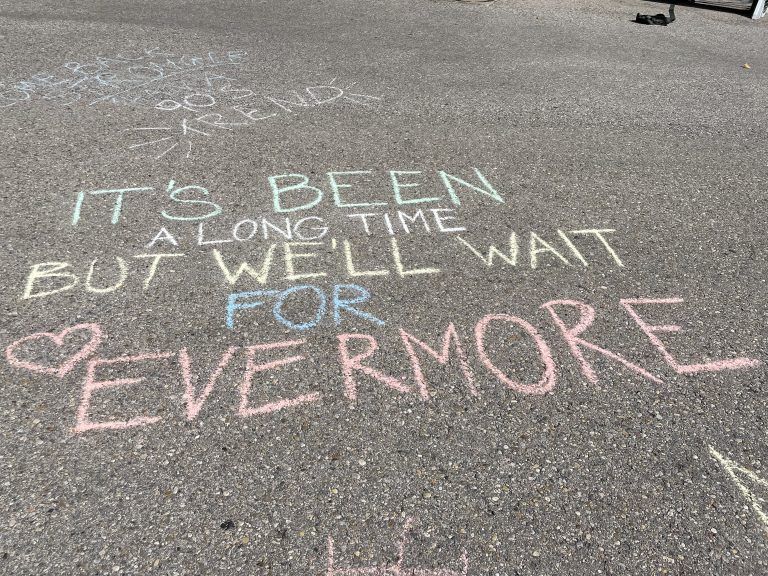 BACK
A
90'S
TREND
IT'S BEEN
A LONG TIME
BUT WE'LL WAIT
FOR
EVERMORE